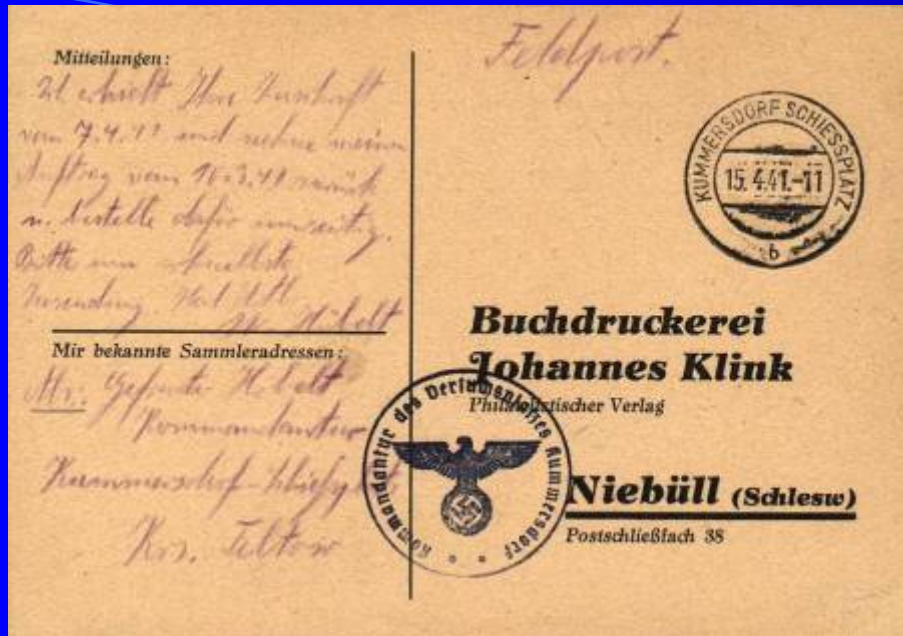 Mitteilungen:
erhielt Ihre Zuschrift
vom 7.4.41 und nehme meinen
Auftrag vom 10.3.41 zurück
u. bestelle dafür umseitig.
Bitte um schnellste
Zusendung. Heil Hitl
Mir bekannte Sammleradressen:
Gefreiter
Kommandantur
Kummersdorf-Schießplatz
Krs. Teltow
Feldpost.
KUMMERSDORF SCHIESSPLATZ
15.4.41.-11
b
Buchdruckerei
Johannes Klink
Philatelistischer Verlag
Niebüll (Schlesw)
Postschließfach 38
Kommandantur des Versuchsplatzes Kummersdorf